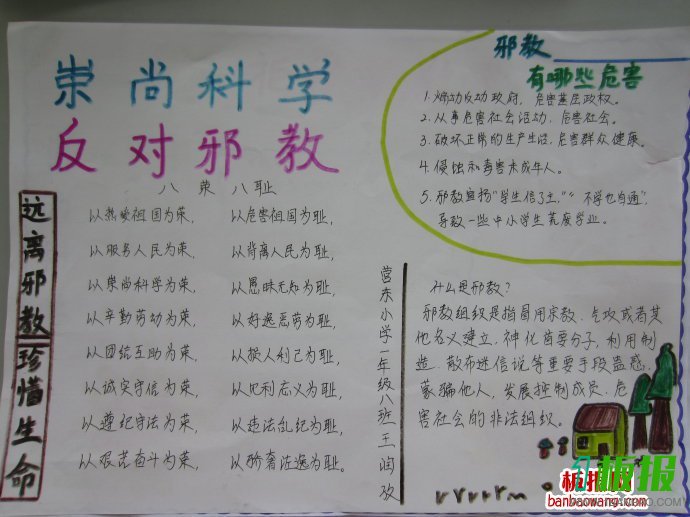 崇尚科学
反对邪教
八荣八耻
以热爱祖国为荣，以危害祖国为耻，
以服务人民为荣，以背离人民为耻，
以崇尚科学为荣，以愚昧无知为耻，
以辛勤劳动为荣，以好逸恶劳为耻，
以团结互助为荣，以损人利己为耻，
以诚实守信为荣，以见利忘义为耻，
以遵纪守法为荣，以违法乱纪为耻，
以艰苦奋斗为荣，以骄奢淫逸为耻。
远离邪教珍惜生命
邪教
有哪些危害
1.煽动反动政府，危害基层政权。
2.从事危害社会活动，危害社会。
3.破坏正常的生产生活，危害群众健康。
4.侵蚀和毒害未成年人。
5.邪教宣扬“学生信了主，”“不学也自通”，
导致一些中小学生荒废学业。
营东小学一年级八班王润
什么是邪教？
邪教组织是指冒用宗教、气功或者其
他名义建立，神化首要分子，利用制
造、散布迷信说等重要手段蛊惑，
蒙骗他人，发展控制成员，危
害社会的非法组织。
板报网
banbaowang.com
板报